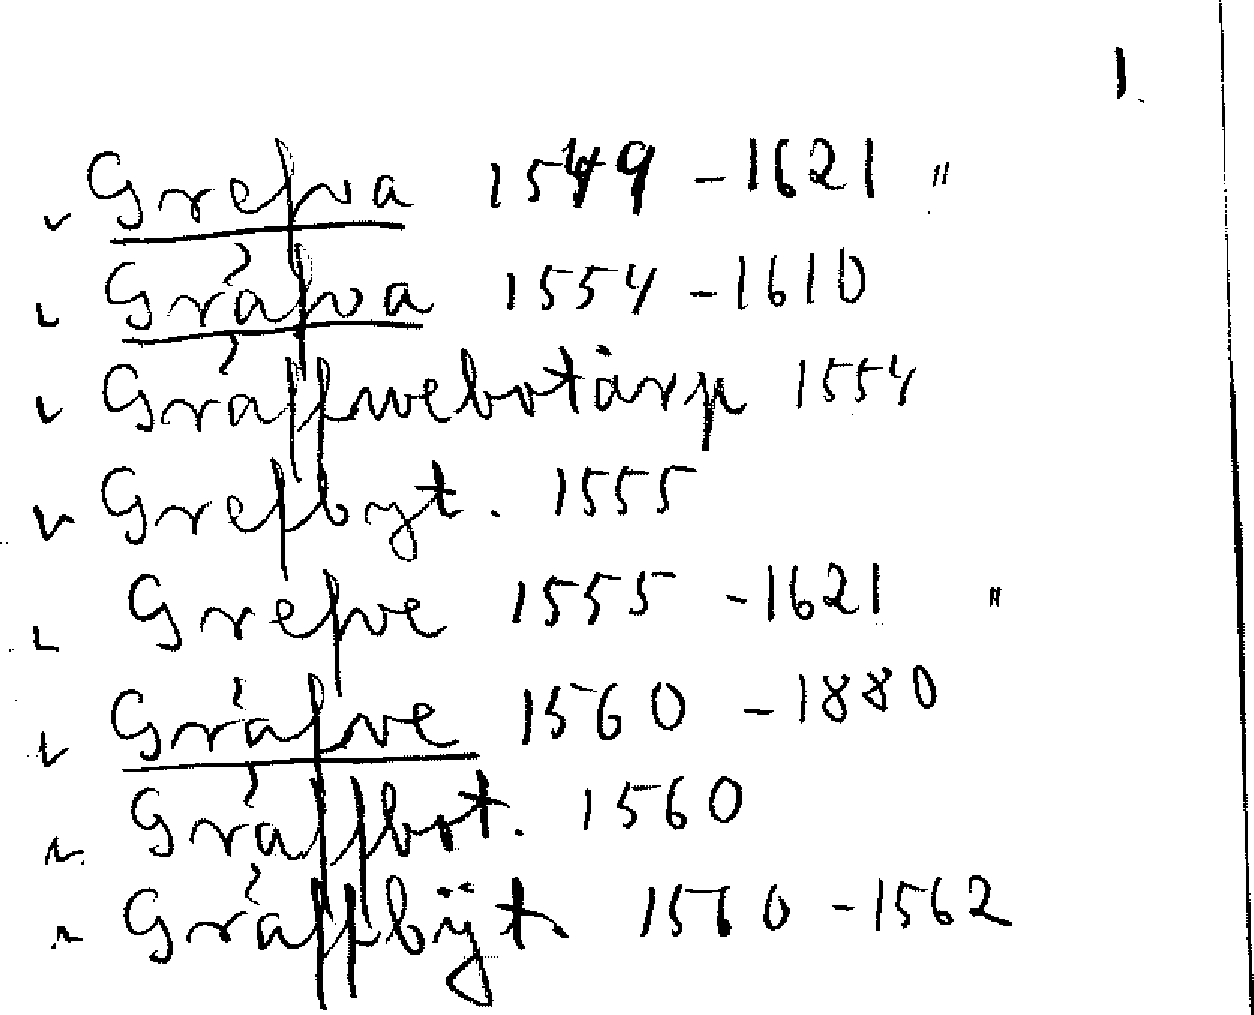 1.
Grefva 1549 - 1621 "
Gråfva 1554 - 1610
Gråffwebotårp 1554
Grefbyt. 1555
Grefve 1555 - 1621 "
Gräfve 1560 - 1880
Gråffbot. 1560
Gråffbÿt 1560 - 1562